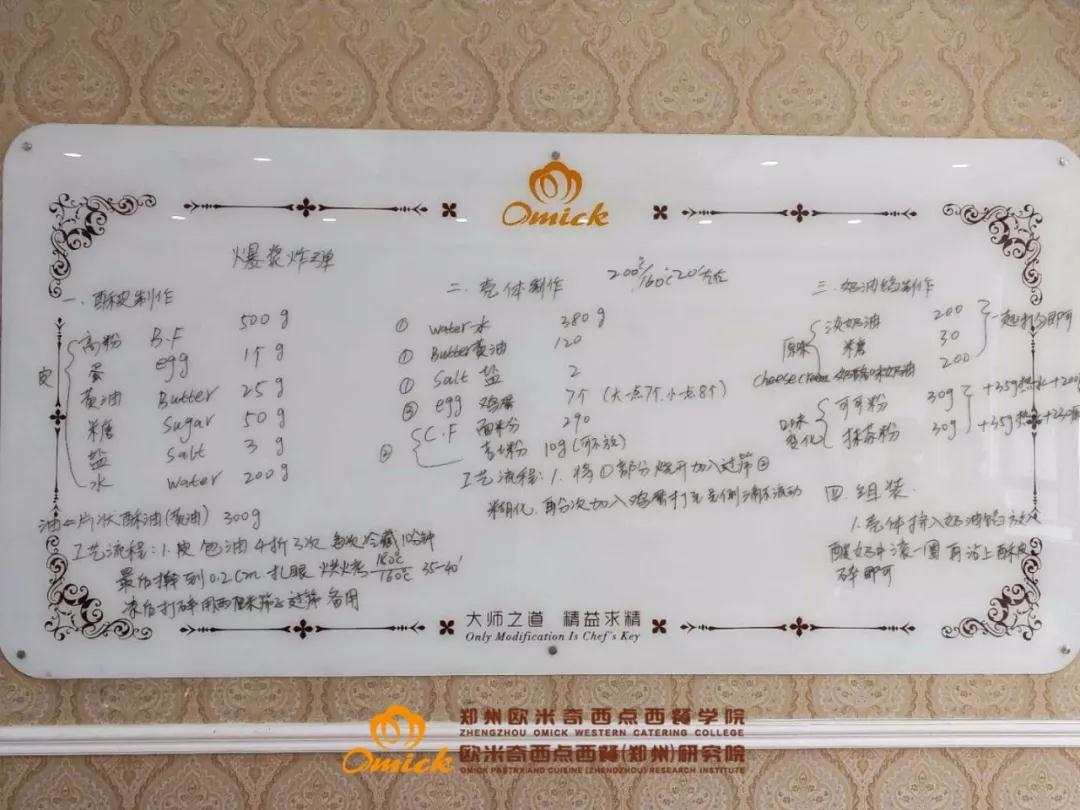 Omick
爆浆炸弹
一、酥皮制作
皮
高粉 B.F 500g
蛋 egg 1个
黄油 Butter 25g
米糖 Sugar 50g
盐 Salt 3g
水 water 200g
油 片状酥油(黄油) 300g
工艺流程:1.皮包油4折3次 每次冷藏10分钟
最后擀到0.2cm.扎眼 烘烤180℃/160℃ 35-40'
凉后打碎用西 筛过筛备用
二、壳体制作
200℃/160℃20'左右
① water水 380g
① Butter黄油 120
① Salt 盐 2
③ egg 鸡蛋 7个(大一点7个.小一点8个)
② C.F 面粉 290
吉士粉 10g(可不放)
工艺流程:1.将①部分烧开加入过筛②
糊化.再分次加入鸡蛋打至
三、奶油馅制作
原味
淡奶油 200
米糖 30
cheese 200
一起打匀即可
口味变化
可可粉 30g +35g热水+200
抹茶粉 30g +35g热水+230
四.组装.
1.壳体挤入奶油馅
酸奶中滚一圈 再沾上酥皮
碎即可
大师之道 精益求精
Only Modification Is Chef's Key
Omick
郑州欧米奇西点西餐学院
ZHENGZHOU OMICK WESTERN CATERING COLLEGE
欧米奇西点西餐(郑州)研究院
OMICK PASTRY AND CUISINE (ZHENGZHOU) RESEARCH INSTITUTE